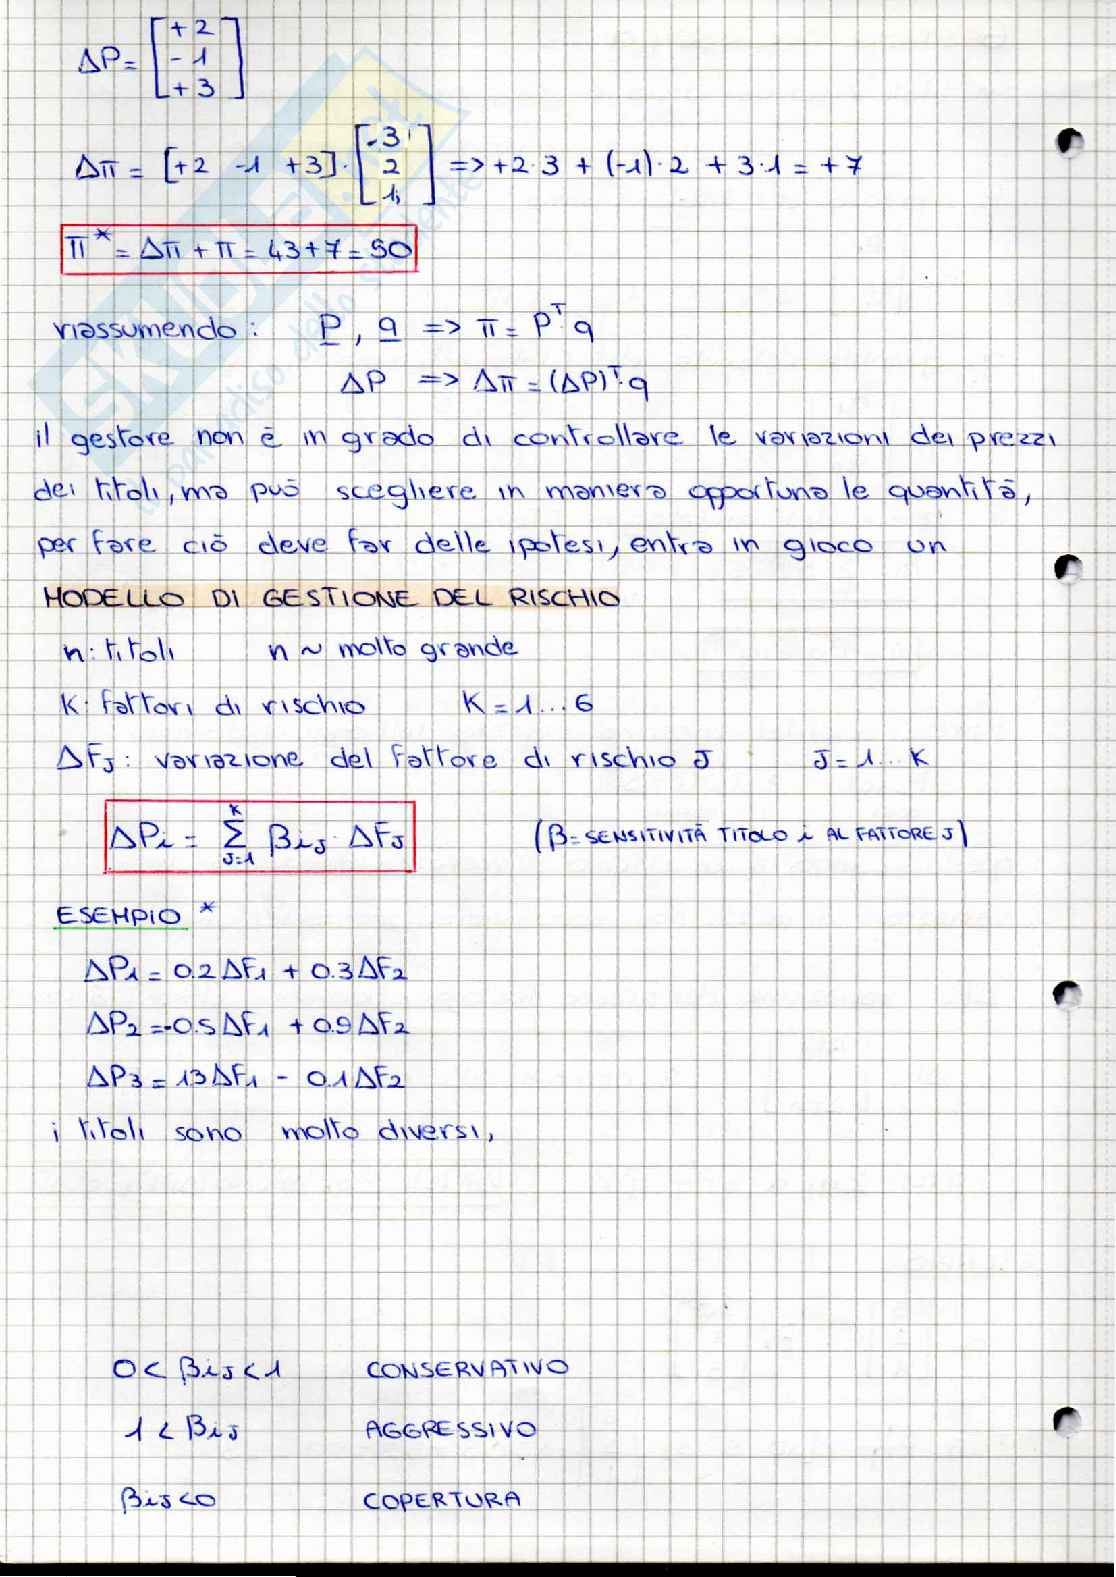 ΔP = [+2 -1 +3]
Δπ = [+2 -1 +3] · [3 2 1] => +2·3 + (-1)·2 + 3·1 = +7
π* = Δπ + π = 43+7 = 50
riassumendo: P, q => π = Pᵀ·q
ΔP => Δπ = (ΔP)ᵀ·q
il gestore non è in grado di controllare le variazioni dei prezzi
dei titoli, ma può scegliere in maniera opportuna le quantità,
per fare ciò deve far delle ipotesi, entra in gioco un
MODELLO DI GESTIONE DEL RISCHIO
n: titoli n ~ molto grande
K: fattori di rischio K = 1...6
ΔFJ: variazione del fattore di rischio J J = 1...K
ΔPi = Σ K J=1 βiJ · ΔFJ (β = SENSITIVITÀ TITOLO i AL FATTORE J)
ESEMPIO *
ΔP1 = 0.2ΔF1 + 0.3ΔF2
ΔP2 = -0.5ΔF1 + 0.9ΔF2
ΔP3 = 13ΔF1 - 0.1ΔF2
i titoli sono molto diversi,
0 < βiJ < 1 CONSERVATIVO
1 < βiJ AGGRESSIVO
βiJ < 0 COPERTURA